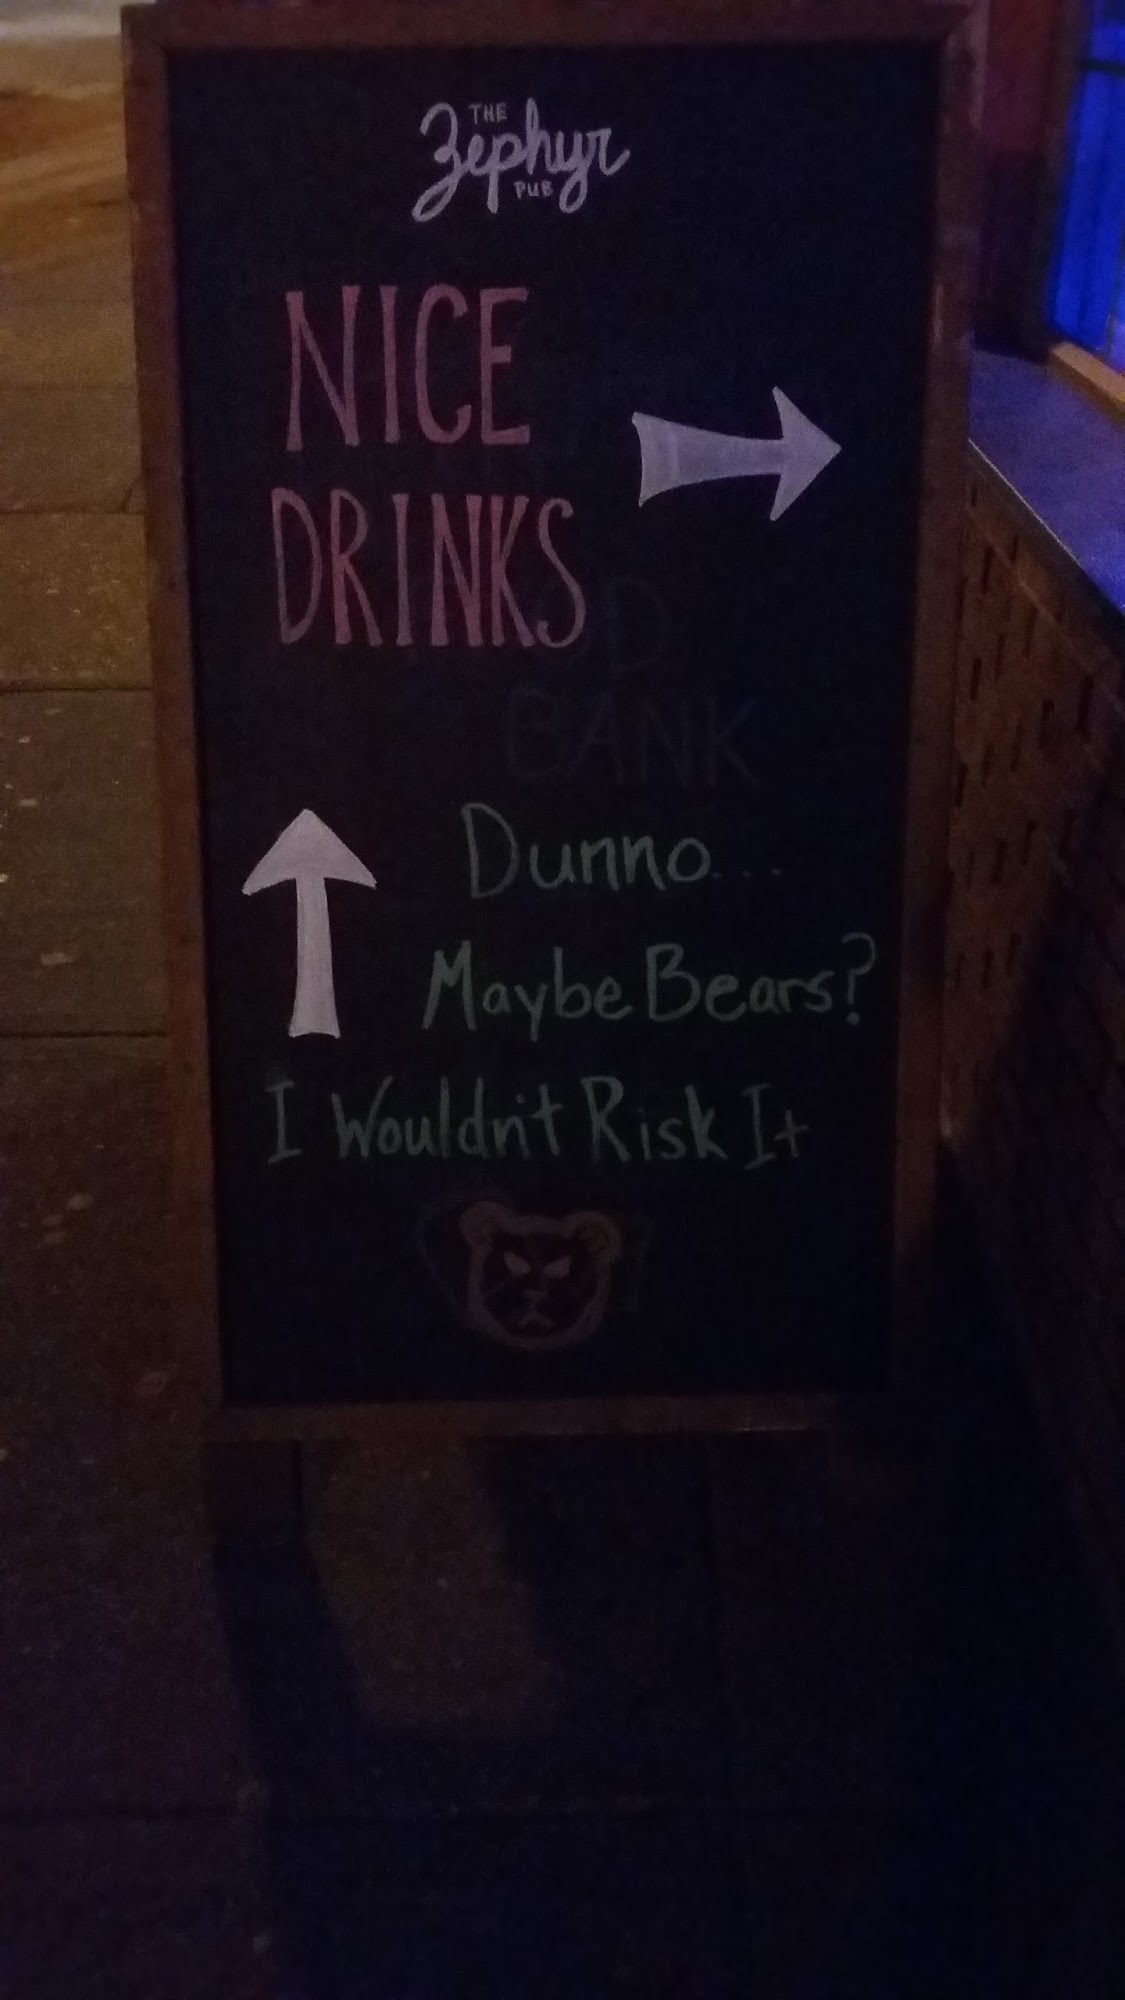 THE
Zephyr
PUB
NICE
DRINKS
D
BANK
Dunno...
Maybe Bears?
I Wouldn't Risk It